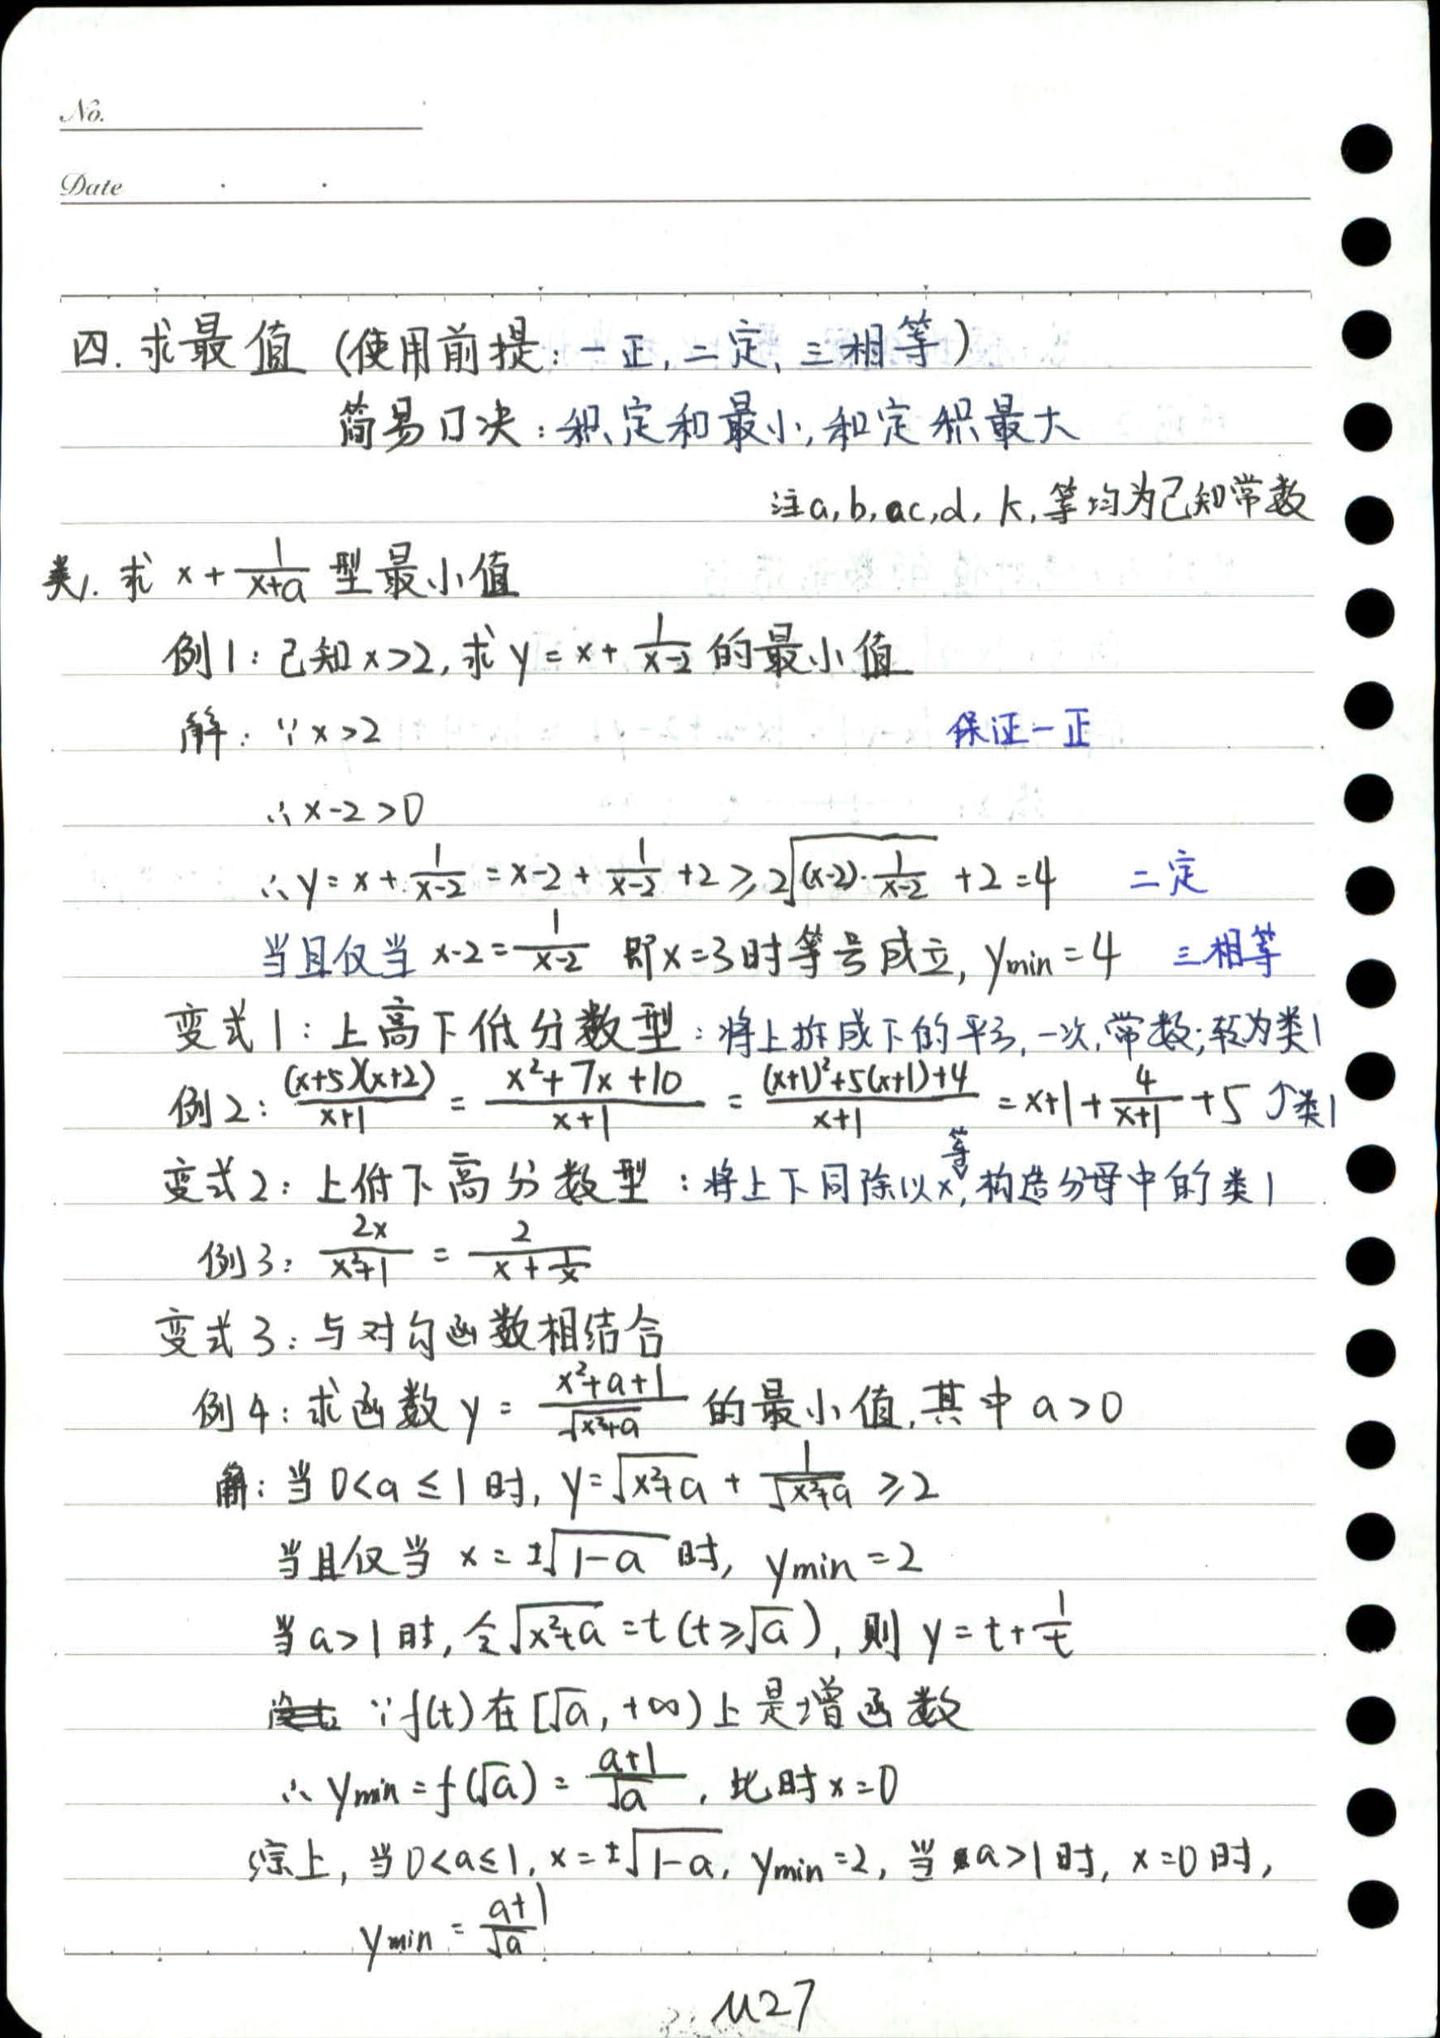 No.
Date
四.求最值(使用前提:一正,二定,三相等)
简易口决:积定和最小,和定积最大
注a,b,c,d,k,等均为已知常数
类1.求 x+1/(x+a) 型最小值
例1:已知x>2,求y=x+1/(x-2)的最小值
解:∵x>2 保证一正
∴x-2>0
∴y=x+1/(x-2)=x-2+1/(x-2)+2≥2√((x-2)·1/(x-2))+2=4 二定
当且仅当 x-2=1/(x-2) 即x=3时等号成立,ymin=4 三相等
变式1:上高下低分数型:将上拆成下的平方,一次,常数;转为类1
例2:(x+5)(x+2)/(x+1)=(x²+7x+10)/(x+1)=((x+1)²+5(x+1)+4)/(x+1)=x+1+4/(x+1)+5 ↑类1
变式2:上低下高分数型:将上下同除以x等,构造分母中的类1
例3:2x/(x²+1)=2/(x+1/x)
变式3:与对勾函数相结合
例4:求函数y=(x²+a+1)/√(x²+a)的最小值,其中a>0
解:当0<a≤1时,y=√(x²+a)+1/√(x²+a)≥2
当且仅当 x=±√(1-a)时,ymin=2
当a>1时,令√(x²+a)=t(t≥√a),则y=t+1/t
∵f(t)在[√a,+∞)上是增函数
∴ymin=f(√a)=(a+1)/√a,此时x=0
综上,当0<a≤1,x=±√(1-a),ymin=2,当a>1时,x=0时,
ymin=(a+1)/√a
M27